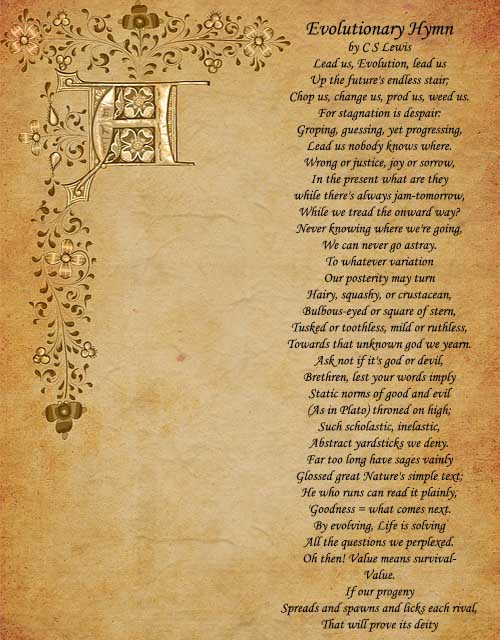 Evolutionary Hymn
by C S Lewis
Lead us, Evolution, lead us
Up the future's endless stair;
Chop us, change us, prod us, weed us.
For stagnation is despair:
Groping, guessing, yet progressing,
Lead us nobody knows where.
Wrong or justice, joy or sorrow,
In the present what are they
while there's always jam-tomorrow,
While we tread the onward way?
Never knowing where we're going,
We can never go astray.
To whatever variation
Our posterity may turn
Hairy, squashy, or crustacean,
Bulbous-eyed or square of stern,
Tusked or toothless, mild or ruthless,
Towards that unknown god we yearn.
Ask not if it's god or devil,
Brethren, lest your words imply
Static norms of good and evil
(As in Plato) throned on high;
Such scholastic, inelastic,
Abstract yardsticks we deny.
Far too long have sages vainly
Glossed great Nature's simple text;
He who runs can read it plainly,
'Goodness = what comes next.'
By evolving, Life is solving
All the questions we perplexed.
Oh then! Value means survival-
Value.
If our progeny
Spreads and spawns and licks each rival,
That will prove its deity
A